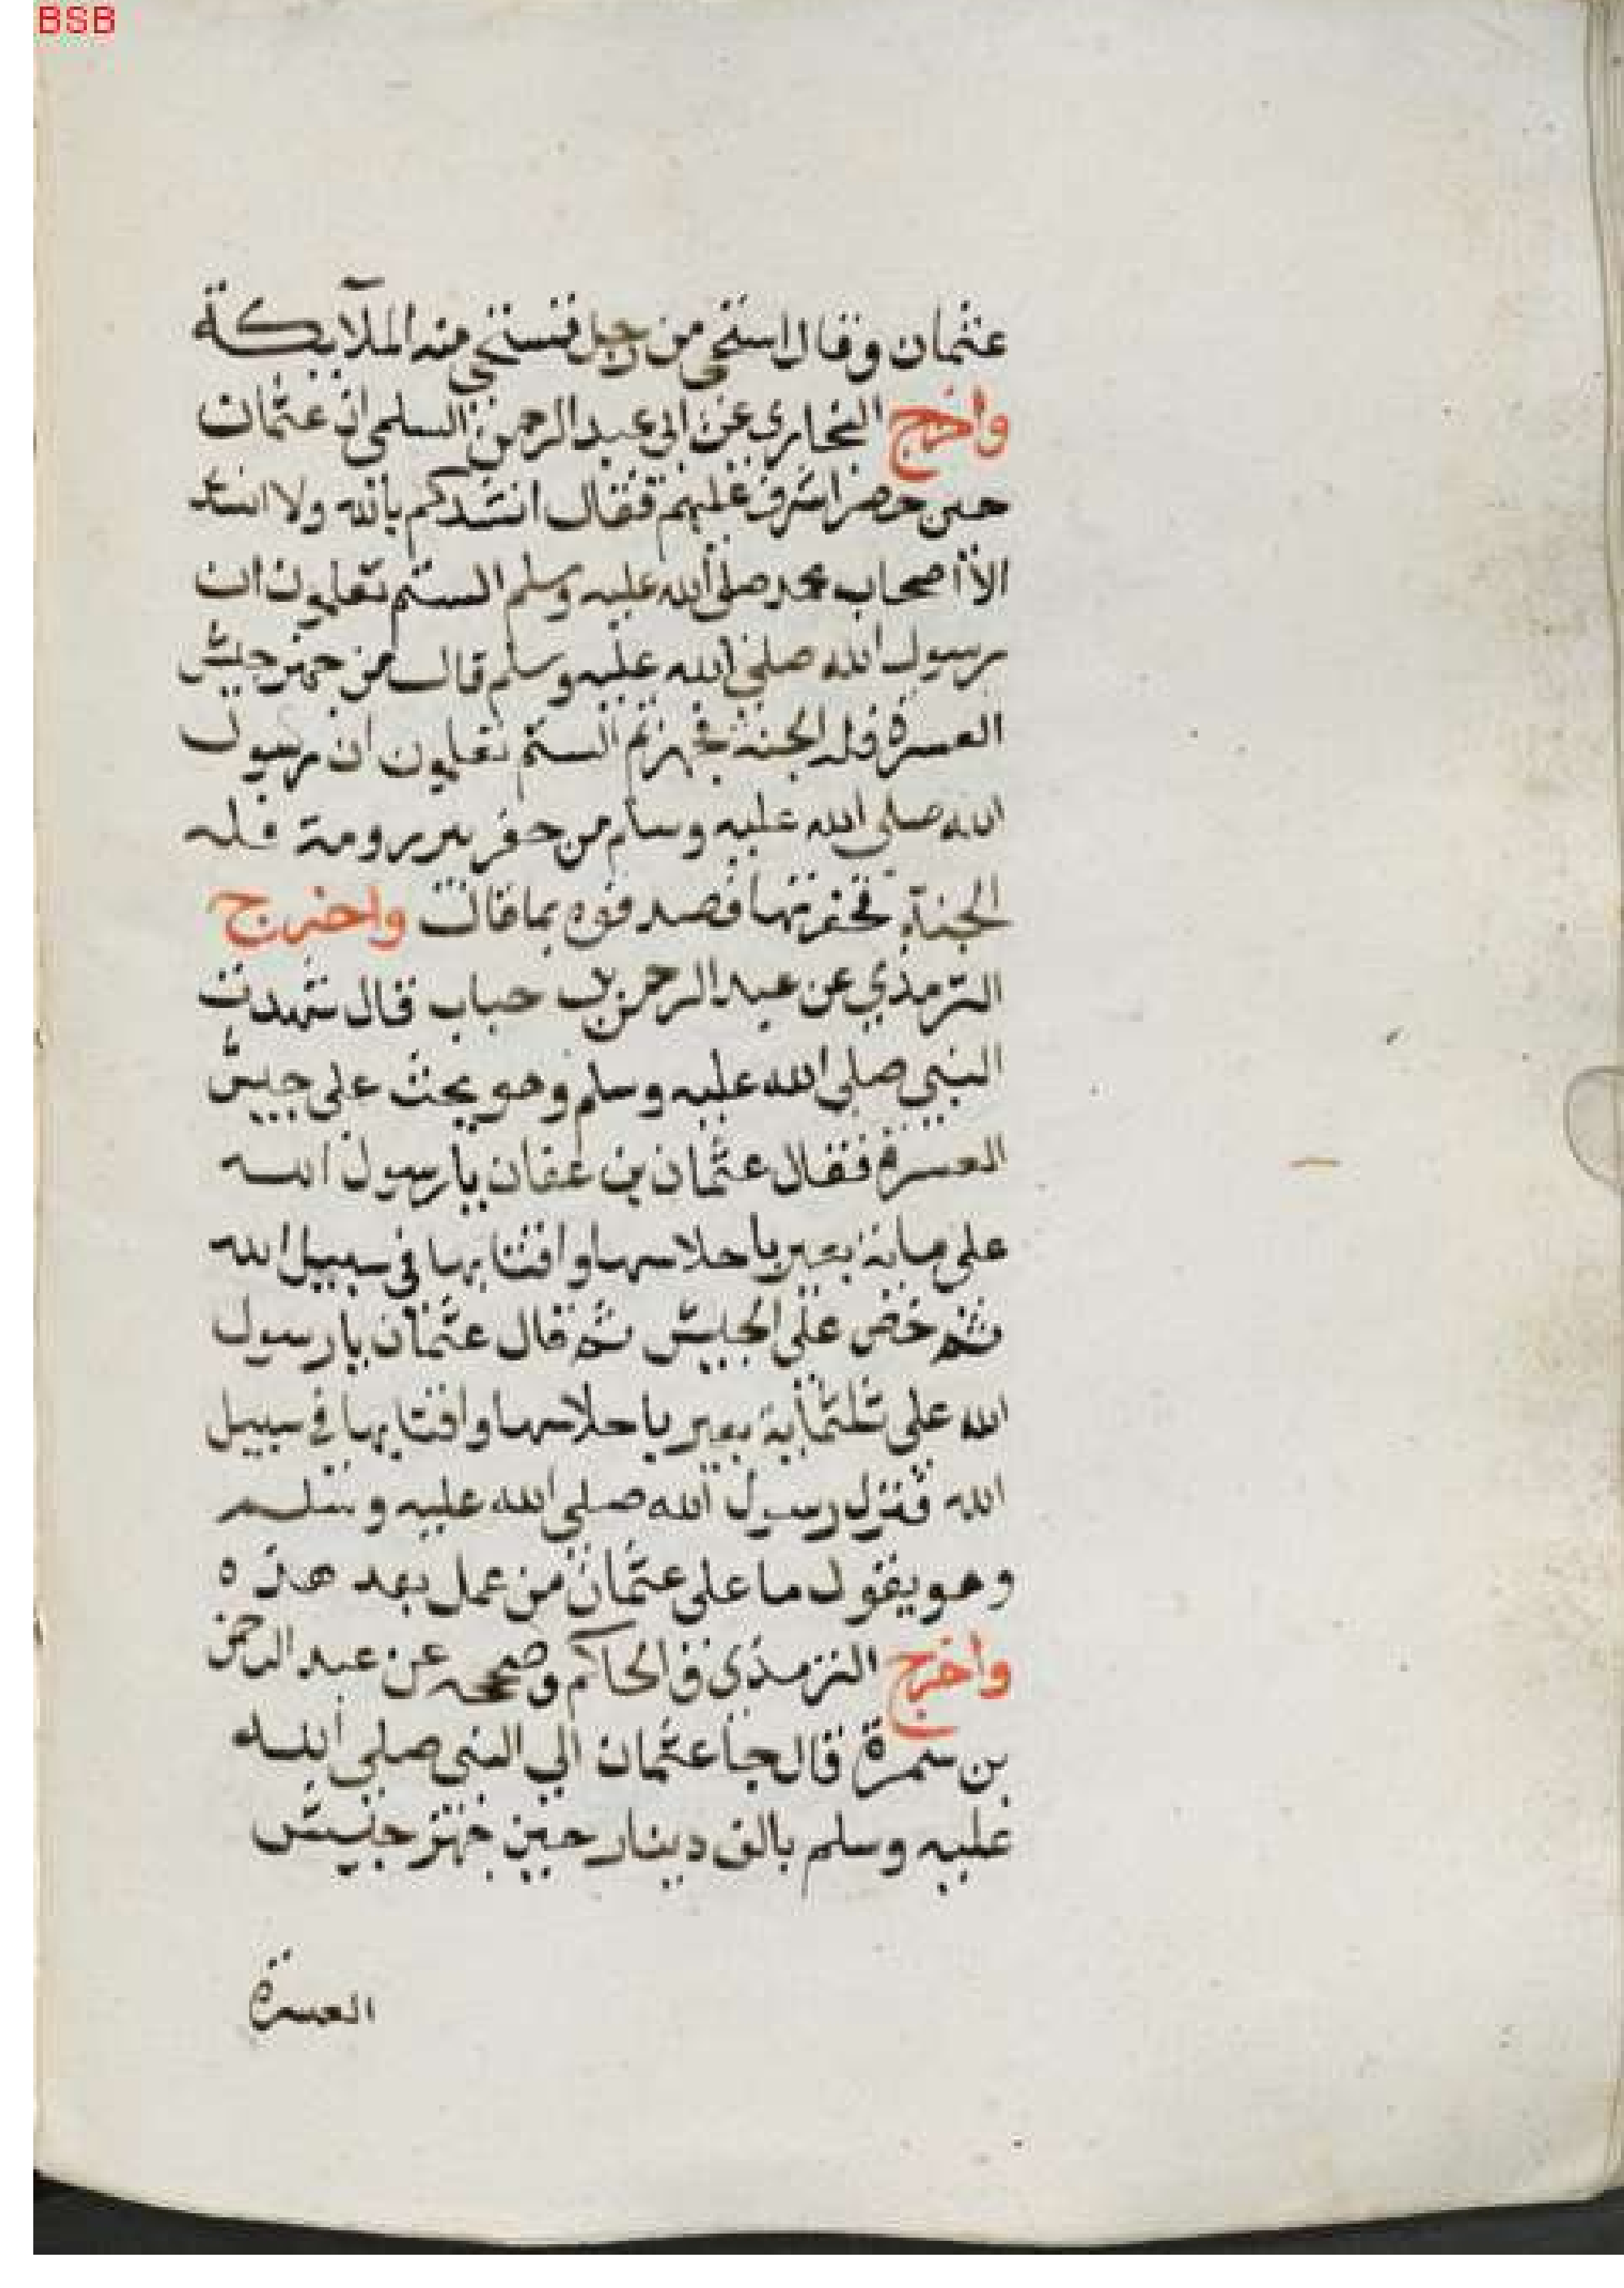 BSB
عثمان وقال استحي من رجل تستحي منه الملآيكة
واخرج البخاري عن ابي عبد الرحمن السلمي ان عثمان
حين حصر اشرف عليهم فقال انشدكم بالله ولا انشد
الا اصحاب محمد صلى الله عليه وسلم الستم تعلمون ان
رسول الله صلى الله عليه وسلم قال من جهز جيش
العسرة فله الجنة فجهزتم الستم تعلمون ان رسول
الله صلى الله عليه وسلم من حفر بير رومة فله
الجنة فحفرتها فصدقوه بما قال واخرج
الترمذي عن عبد الرحمن بن خباب قال شهدت
النبي صلى الله عليه وسلم وهو يحث على جيش
العسرة فقال عثمان بن عفان يا رسول الله
على ماية بعير باحلاسها واقتابها في سبيل الله
ثم حض على الجيش ثم قال عثمان يا رسول
الله على ثلثماية بعير باحلاسها واقتابها في سبيل
الله فنزل رسول الله صلى الله عليه وسلم
وهو يقول ما على عثمان من عمل بعد هذه
واخرج الترمذي والحاكم وصححه عن عبد الرحمن
بن سمرة قال جا عثمان الي النبي صلى الله
عليه وسلم بالف دينار حين جهز جيش
العسرة